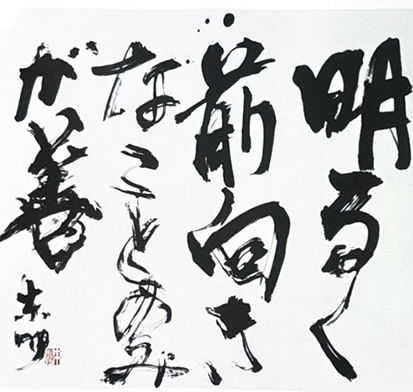 明るく
前向き
なことのみ
が善